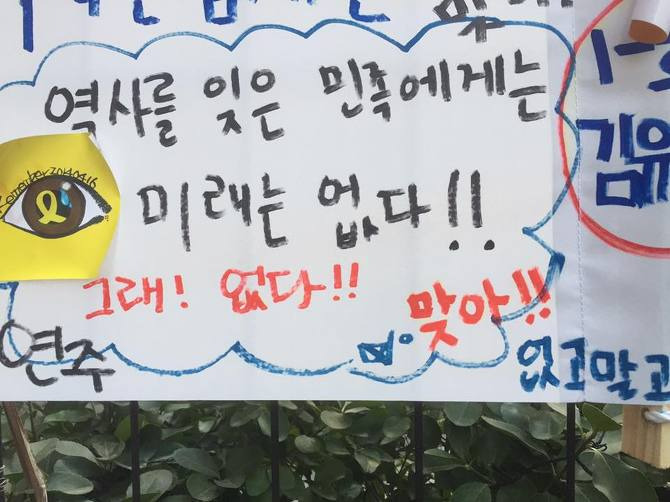 역사를 잊은 민족에게는
Remember 20140416
미래는 없다!!
그래! 없다!!
맞아!!
연주
없고말고